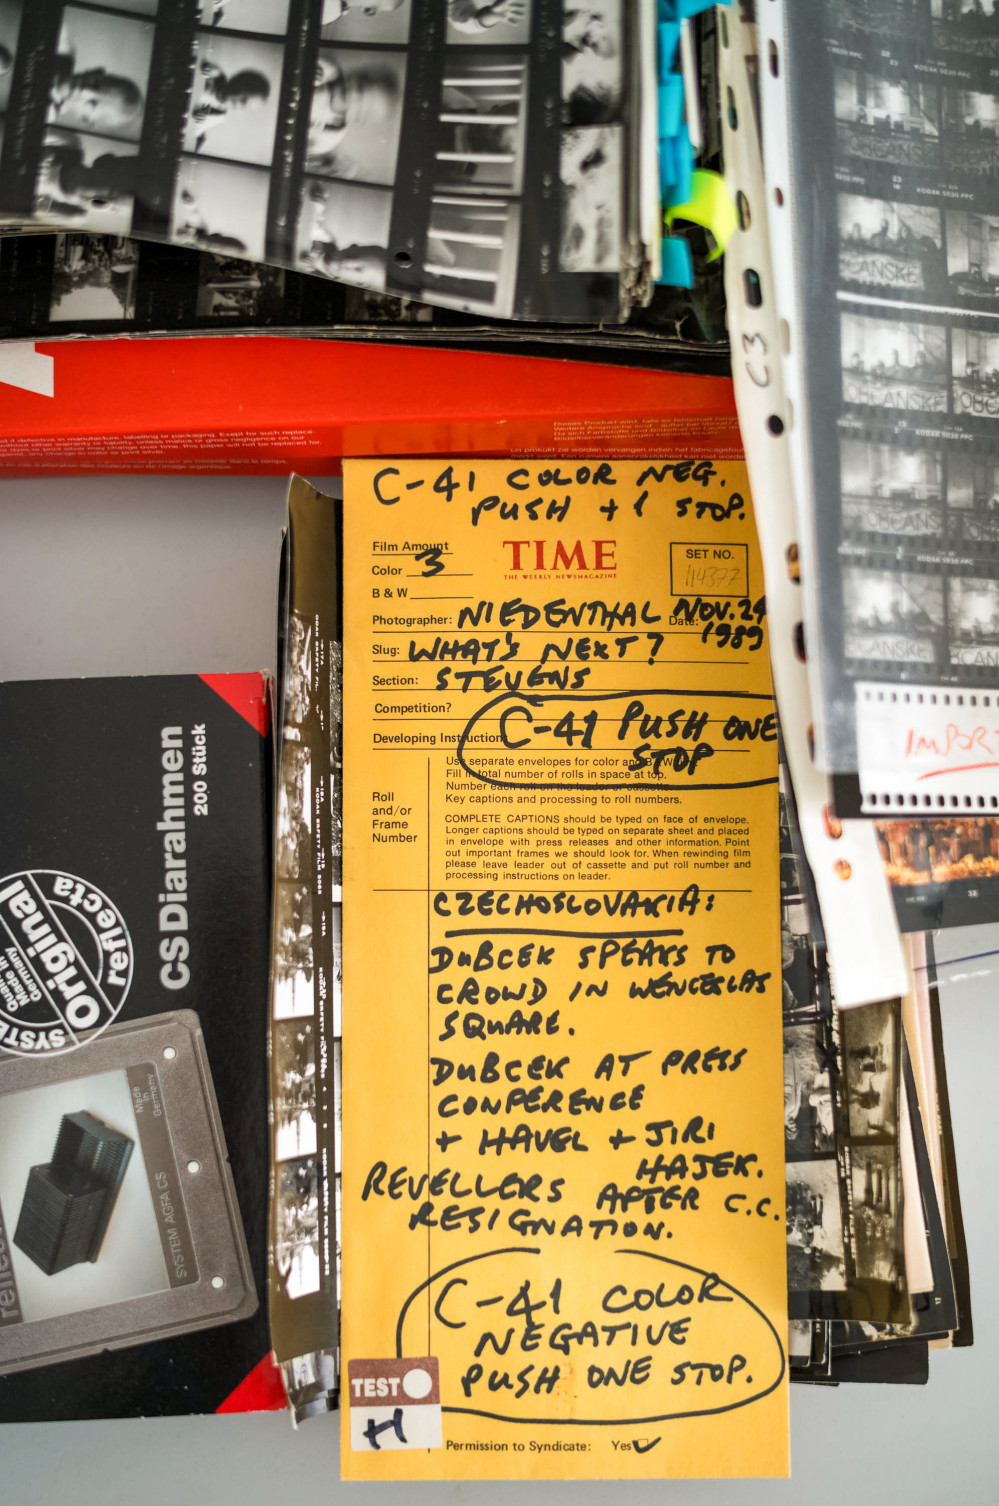 C-41 COLOR NEG.
PUSH + 1 STOP.
Film Amount
Color 3
B & W
TIME
THE WEEKLY NEWSMAGAZINE
SET NO.
114377
Photographer: NIEDENTHAL
Date: NOV. 24
1989
Slug: WHAT'S NEXT?
Section: STEVENS
Competition?
Developing Instructions
C-41 PUSH ONE
STOP
Use separate envelopes for color and B&W
Fill in total number of rolls in space at top.
Number each roll on the leader or cassette.
Key captions and processing to roll numbers.
Roll
and/or
Frame
Number
COMPLETE CAPTIONS should be typed on face of envelope.
Longer captions should be typed on separate sheet and placed
in envelope with press releases and other information. Point
out important frames we should look for. When rewinding film
please leave leader out of cassette and put roll number and
processing instructions on leader.
CZECHOSLOVAKIA:
DUBCEK SPEAKS TO
CROWD IN WENCESLAS
SQUARE.
DUBCEK AT PRESS
CONFERENCE
+ HAVEL + JIRI
HAJEK.
REVELLERS AFTER C.C.
RESIGNATION.
C-41 COLOR
NEGATIVE
PUSH ONE STOP.
TEST
H
Permission to Syndicate: Yes
CS Diarahmen
200 Stück
Original
reflecta
Made in
Germany
SYSTEM AGFA CS
Made
in
Germany
C3
KODAK 5030 FPC
OBEANSKE
IMPOR
32